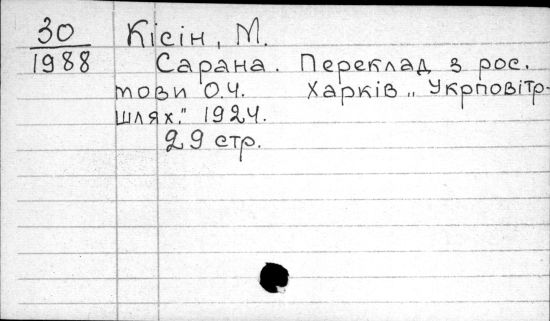 30
1988
Кісін, М.
Сарана. Переклад з рос.
мови О.Ч. Харків „Укрповітр-
шлях." 1924.
29 стр.